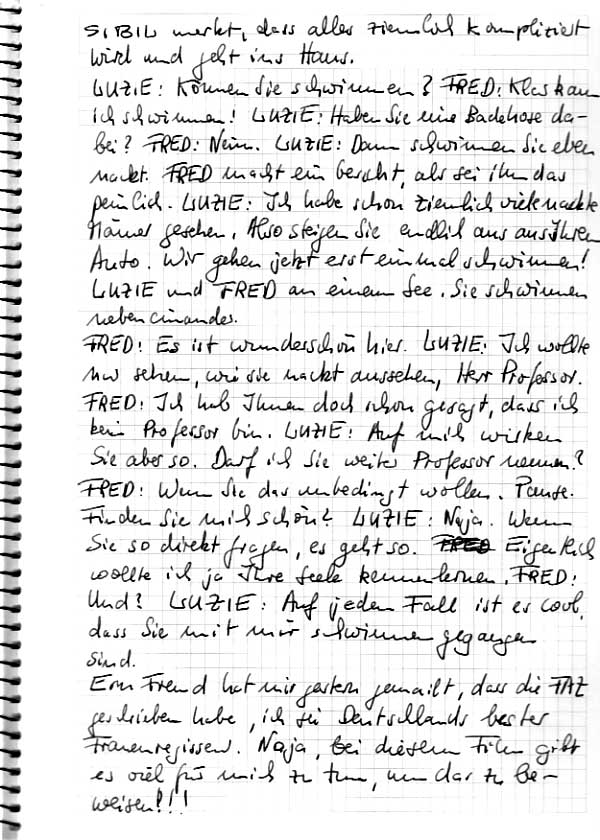 SIBIL merkt, dass alles ziemlich kompliziert
wird und geht ins Haus.
LUZIE: Können Sie schwimmen? FRED: Klar kann
ich schwimmen! LUZIE: Haben Sie eine Badehose da-
bei? FRED: Nein. LUZIE: Dann schwimmen Sie eben
nackt. FRED macht ein Gesicht, als sei ihm das
peinlich. LUZIE: Ich habe schon ziemlich viele nackte
Männer gesehen. Also steigen Sie endlich aus aus Ihrem
Auto. Wir gehen jetzt erst einmal schwimmen!
LUZIE und FRED an einem See. Sie schwimmen
nebeneinander.
FRED: Es ist wunderschön hier. LUZIE: Ich wollte
nur sehen, wie sie nackt aussehen, Herr Professor.
FRED: Ich hab Ihnen doch schon gesagt, dass ich
kein Professor bin. LUZIE: Auf mich wirken
Sie aber so. Darf ich Sie weiter Professor nennen?
FRED: Wenn Sie das unbedingt wollen. Pause.
Finden Sie mich schön? LUZIE: Naja. Wenn
Sie so direkt fragen, es geht so. Eigentlich
wollte ich ja Ihre Seele kennenlernen. FRED:
Und? LUZIE: Auf jeden Fall ist es cool,
dass Sie mit mir schwimmen gegangen
sind.
Ein Freund hat mir gestern gemailt, dass die FAZ
geschrieben habe, ich sei Deutschlands bester
Frauenregisseur. Naja, bei diesem Film gibt
es viel für mich zu tun, um das zu be-
weisen!!!